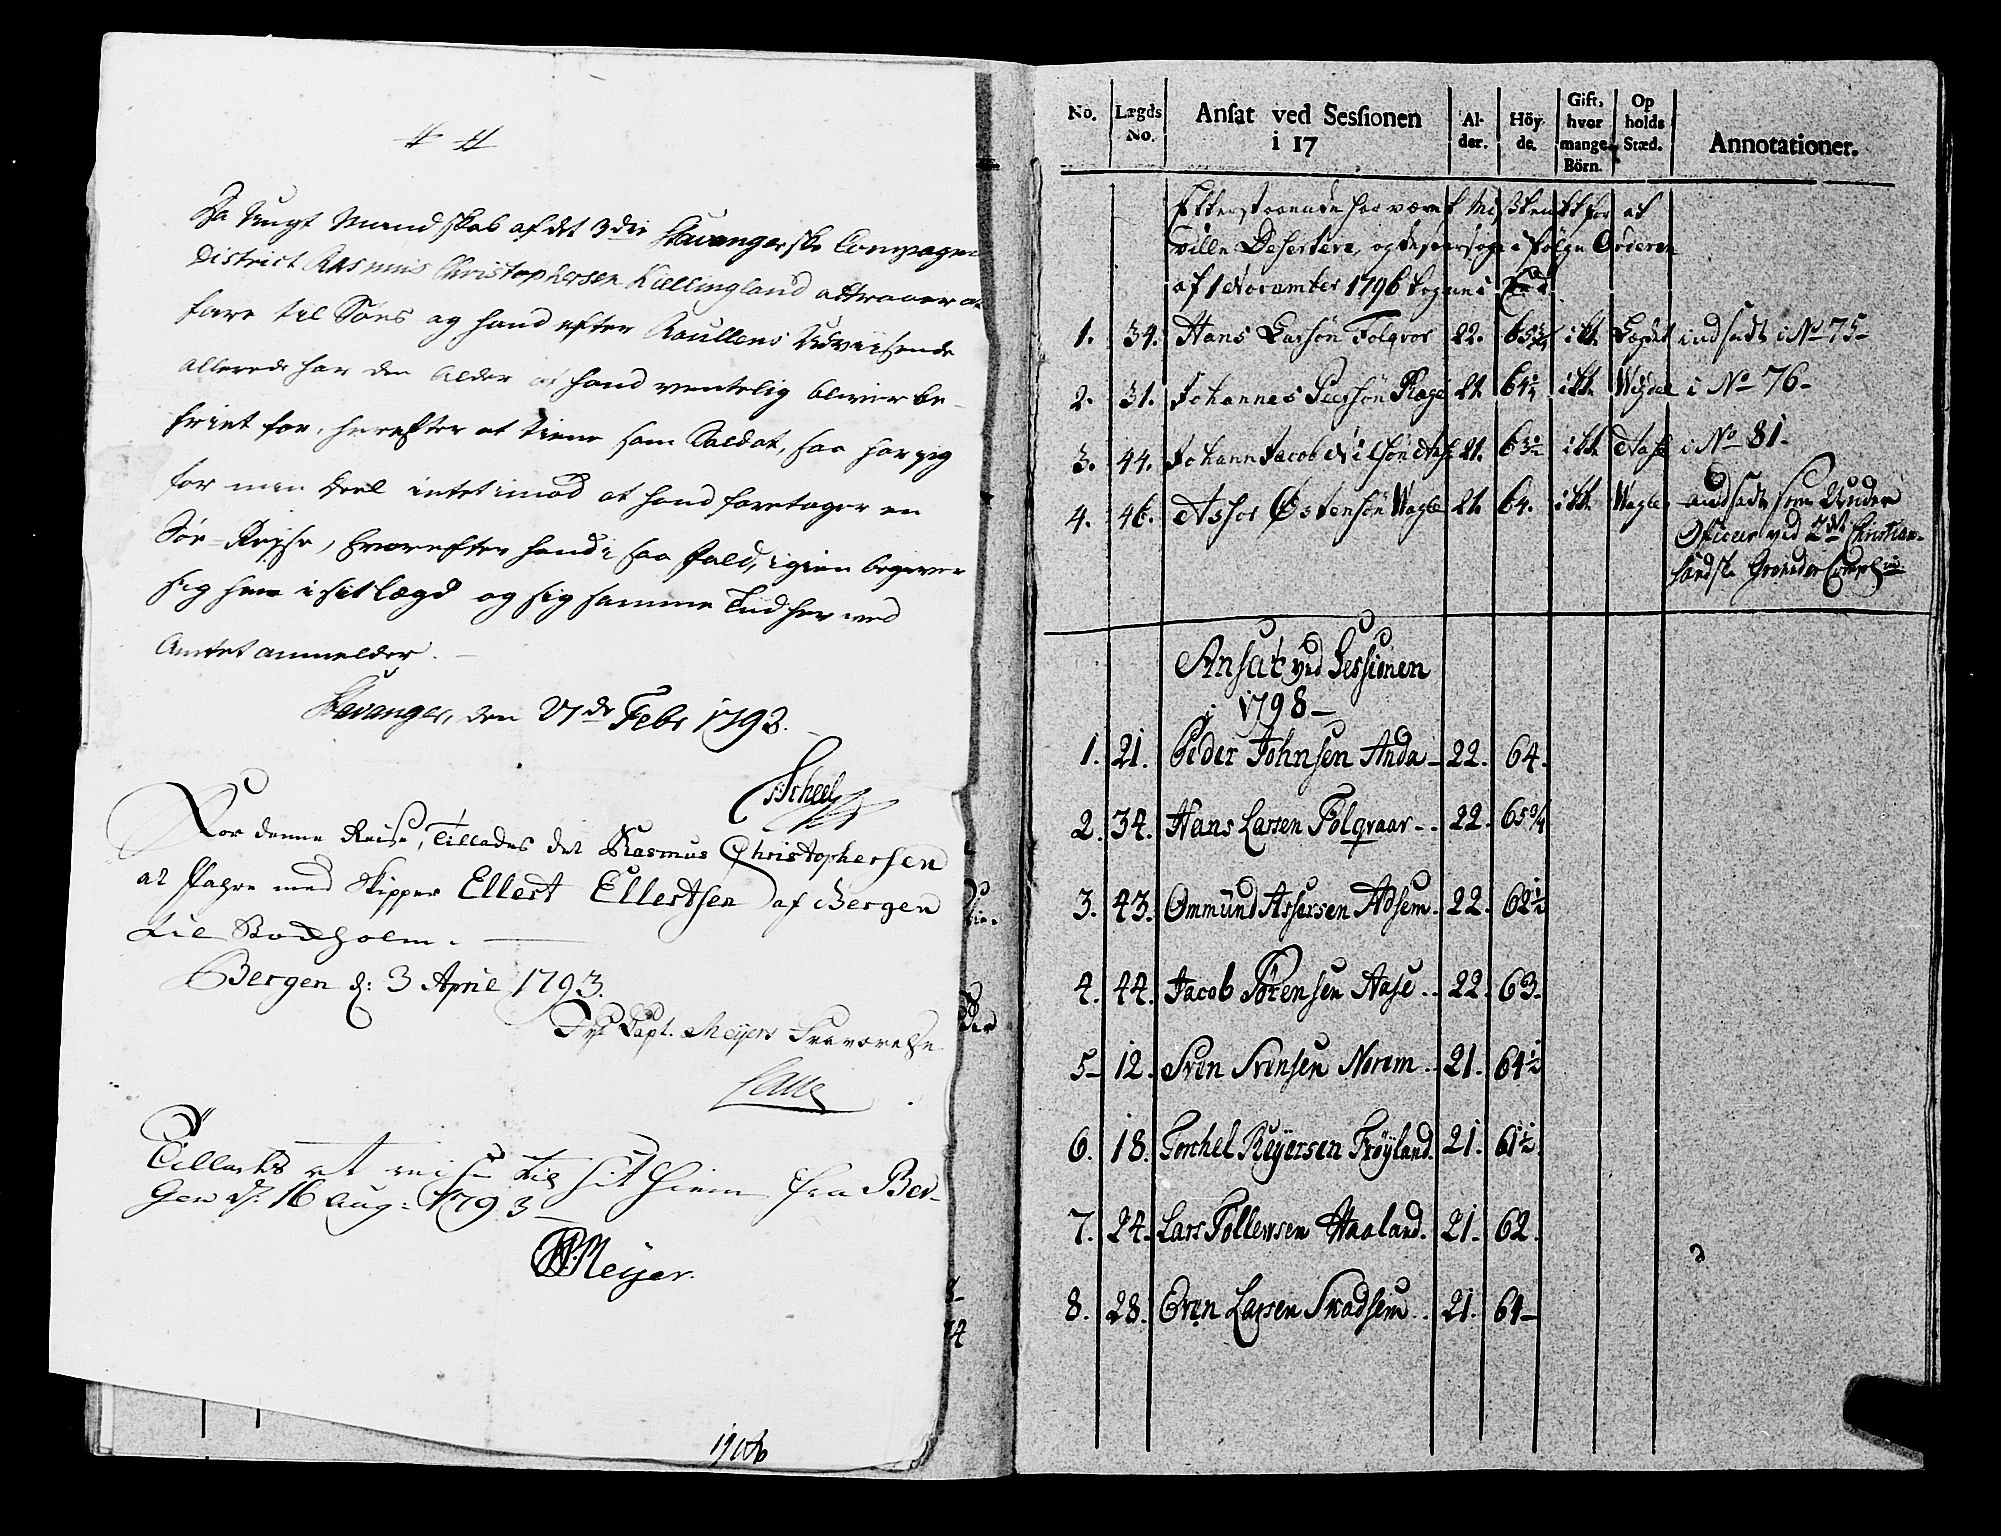 Da Ungt Mandskab af det 3die Stavangerske Compagnie
District Rasmus Christophersen Kiellingland attraaer at
fare til Søes og hand efter Rullens Udviisende
allerede har den Alder at hand ventelig bliver be-
friet for, herefter at tiene som Soldat, saa har jeg
for min Deel intet imod at hand foretager en
Søe-Reyse, hvorefter hand i saa fald, igien begiver
sig hen i sit lægd og sig samme Tid her ved
Amtet anmelder.
Stavanger, den 27de Febr 1793.
Scheel
For denne Reise, Tillades det Rasmus Christophersen
at fahre med Skipper Ellert Ellertsen af Bergen
til Stockholm.
Bergen d: 3 April 1793.
Capt. Meyers Fraværelse
Tillades at reise til sit hiem fra Ber-
gen d: 16 Aug: 1793
Meyer.
No. Lægds No. Ansat ved Sessionen i 17 Al- der. Höy- de. Gift, hvor mange Börn. Op holds Stæd. Annotationer.
Efterstaaende har været Mistænkt for at
ville Desertere, og desaarsage i følge Orderen
af 1 November 1796 tagne i
1. 34. Hans Larsøn Folqvor 22. 65 3/4 ikk. Lægdet indsadt i No 75-
2. 31. Johannes Peersøn Rage 21. 64 1/2 ikk. Wigdel i No 76-
3. 44. Johann Jacob Nilsøn Aase 21. 63 1/2 ikk. Aase i No 81-
4. 46. Assor Østensøn Wagle 21. 64. ikk. Wagle. andsadt som Under
Officeer ved 2det Christian-
sandske
Ansat ved Sessionen
i 1798-
1. 21. Peder Johnsen Anda 22. 64.
2. 34. Hans Larsen Folqvaar 22. 65 3/4
3. 43. Ommund Assersen Adsem 22. 62 1/2
4. 44. Jacob Sørensen Aase 22. 63.
5 12. Sven Svensen Norem 21. 64 1/2
6. 18. Torchel Reyersen Frøyland. 21. 61 1/2
7. 24. Lars Tollewsen Haaland. 21. 62.
8. 28. Even Larsen Svadsem 21. 64